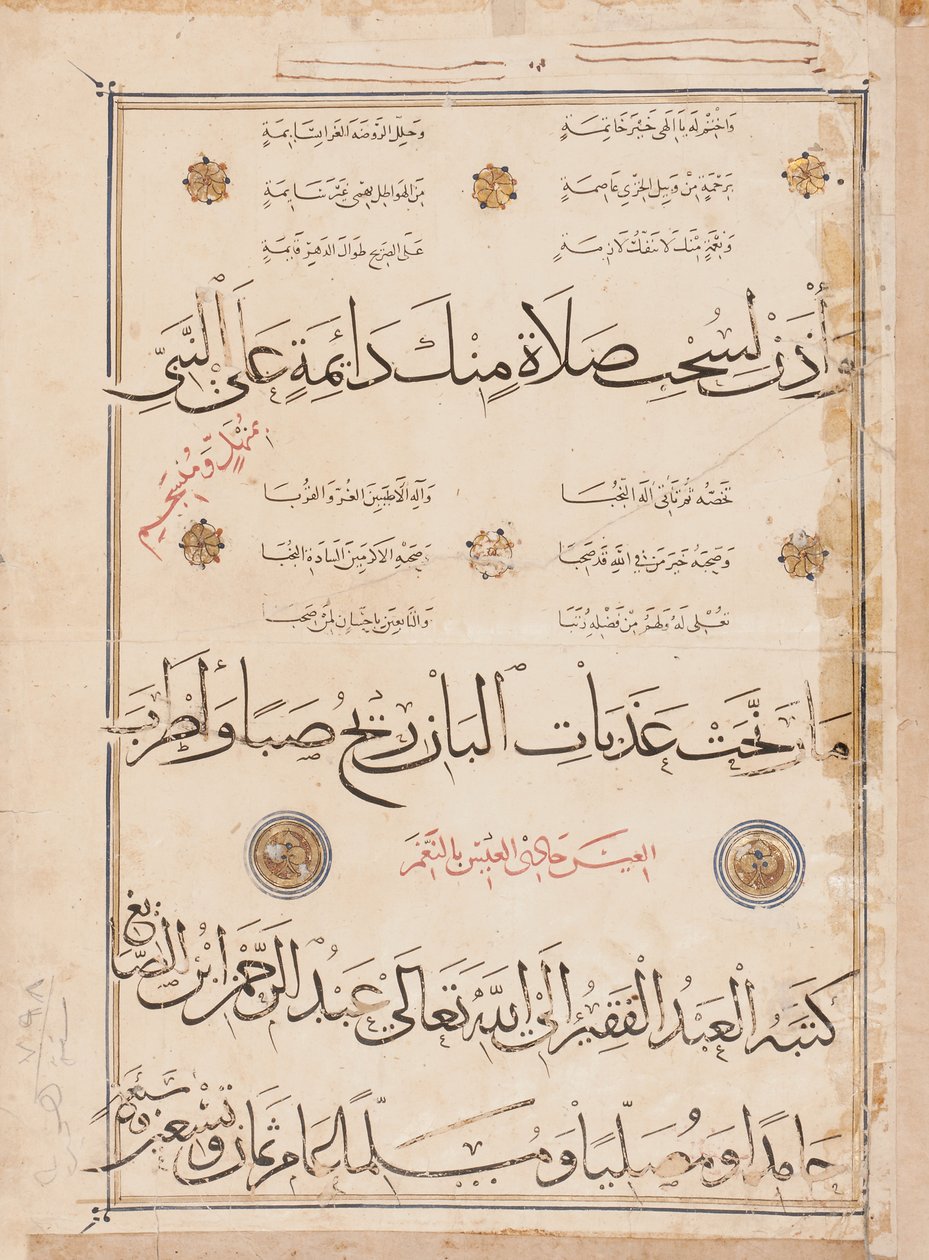 وَاخْتِمْ لَهُ يَا إِلَهِي خَيْرَ خَاتِمَةٍ وَحَلِّلِ الرَّوْضَةَ الغَرَّا
بِرَحْمَةٍ مِنْ وَبِيلِ الخِزْيِ عَاصِمَةٍ مِنَ الهَوَاطِلِ
وَنِعْمَةٍ مِنْكَ لَا تَنْفَكُّ لَازِمَةٍ عَلَى الضَّرِيحِ طِوَالَ الدَّهْرِ قَايِمَةٍ
وَأْذَنْ لِسُحْبِ صَلَاةٍ مِنْكَ دَائِمَةٍ عَلَى النَّبِيِّ
بِمُنْهَلٍّ وَمُنْسَجِمِ
تَخُصُّهُ ثُمَّ تَأْتِي آلَهُ النُّجُبَا وَآلِهِ الأَطْيَبِينَ الغُرِّ وَالقُرُبَا
وَصَحْبَهُ خَيْرَ مَنْ فِي اللّهِ قَدْ صَحِبَا وَصَحْبِهِ الأَكْرَمِينَ السَّادَةِ النُّجُبَا
تُعْلِي لَهُ وَلَهُمْ مِنْ فَضْلِهِ رُتَبَا وَالتَّابِعِينَ بِإِحْسَانٍ لِمَنْ صَحِبَا
مَا رَنَّحَتْ عَذَبَاتِ البَانِ رِيحُ صَبًا وَأَطْرَبَ
العِيسَ حَادِي العِيسِ بِالنَّغَمِ
كَتَبَهُ العَبْدُ الفَقِيرُ إِلَى اللّهِ تَعَالَى عَبْدُ الرَّحْمَنِ ابْنُ الصَّايِغِ
حَامِدًا وَمُصَلِّيًا وَمُسَلِّمًا عَامَ ثَمَانٍ وَتِسْعِينَ وَسَبْعِمِ
٧٩٨